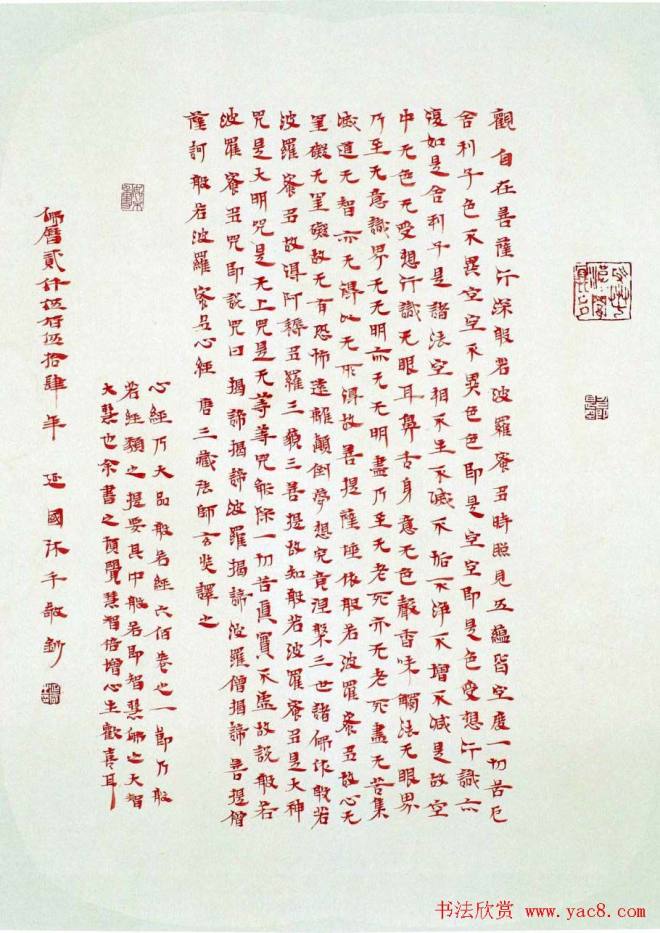 觀自在菩薩行深般若波羅蜜多時照見五蘊皆空度一切苦厄
舍利子色不異空空不異色色即是空空即是色受想行識亦
復如是舍利子是諸法空相不生不滅不垢不淨不增不減是故空
中无色无受想行識无眼耳鼻舌身意无色聲香味觸法无眼界
乃至无意識界无无明亦无无明盡乃至无老死亦无老死盡无苦集
滅道无智亦无得以无所得故菩提薩埵依般若波羅蜜多故心无
罣礙无罣礙故无有恐怖遠離顛倒夢想究竟涅槃三世諸佛依般若
波羅蜜多故得阿耨多羅三藐三菩提故知般若波羅蜜多是大神
咒是大明咒是无上咒是无等等咒能除一切苦真實不虛故說般若
波羅蜜多咒即說咒曰揭諦揭諦波羅揭諦波羅僧揭諦菩提僧
薩訶般若波羅蜜多心經 唐三藏法師玄奘譯之
心經乃大品般若經六佰卷之一節乃般
若經類之提要其中般若即智慧佛之大智
大慧也余書之頓覺慧智倍增心生歡喜耳
佛曆貳仟伍佰伍拾肆年 延國沐手敬鈔
书法欣赏 www.yac8.com